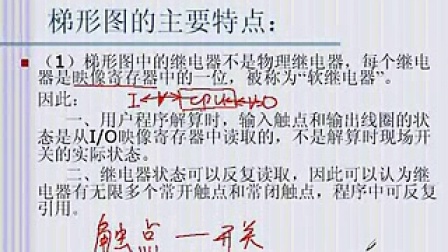 梯形图的主要特点：
（1）梯形图中的继电器不是物理继电器，每个继电
器是映像寄存器中的一位，被称为“软继电器”。
因此：
I CPU O
一、用户程序解算时，输入触点和输出线圈的状
态是从I/O映像寄存器中读取的，不是解算时现场开
关的实际状态。
二、继电器状态可以反复读取，因此可以认为继
电器有无限多个常开触点和常闭触点，程序中可反复
引用。
触点 — 开关